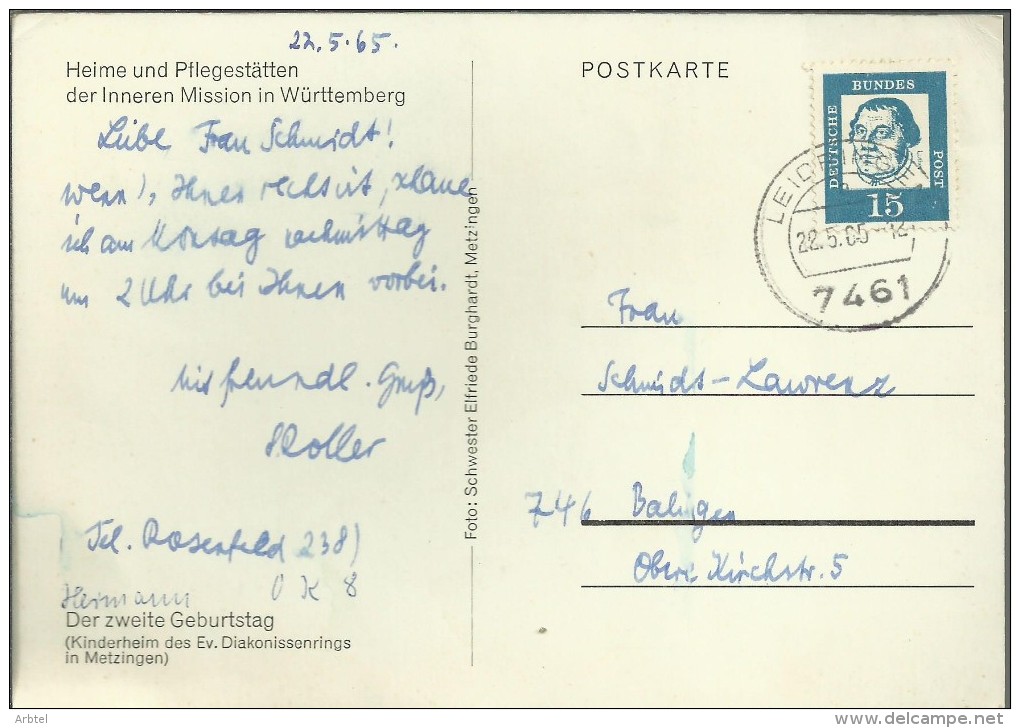 22.5.65.
Heime und Pflegestätten
der Inneren Mission in Württemberg
Liebe Frau Schmidt!
wenn's Ihnen recht ist, schaue
ich am Montag nachmittag
um 2 Uhr bei Ihnen vorbei.
Mit freundl. Gruß,
Roller
Tel. Rosenfeld 238)
Hermann
O K 8
Der zweite Geburtstag
(Kinderheim des Ev. Diakonissenrings
in Metzingen)
Foto: Schwester Elfriede Burghardt, Metzingen
POSTKARTE
DEUTSCHE BUNDES POST
15
LEIDRINGEN
22.5.65-12
7461
Frau
Schmidt-Lawrenz
746 Balingen
Obere Kirchstr. 5
Arbtel
www.delcampe.net